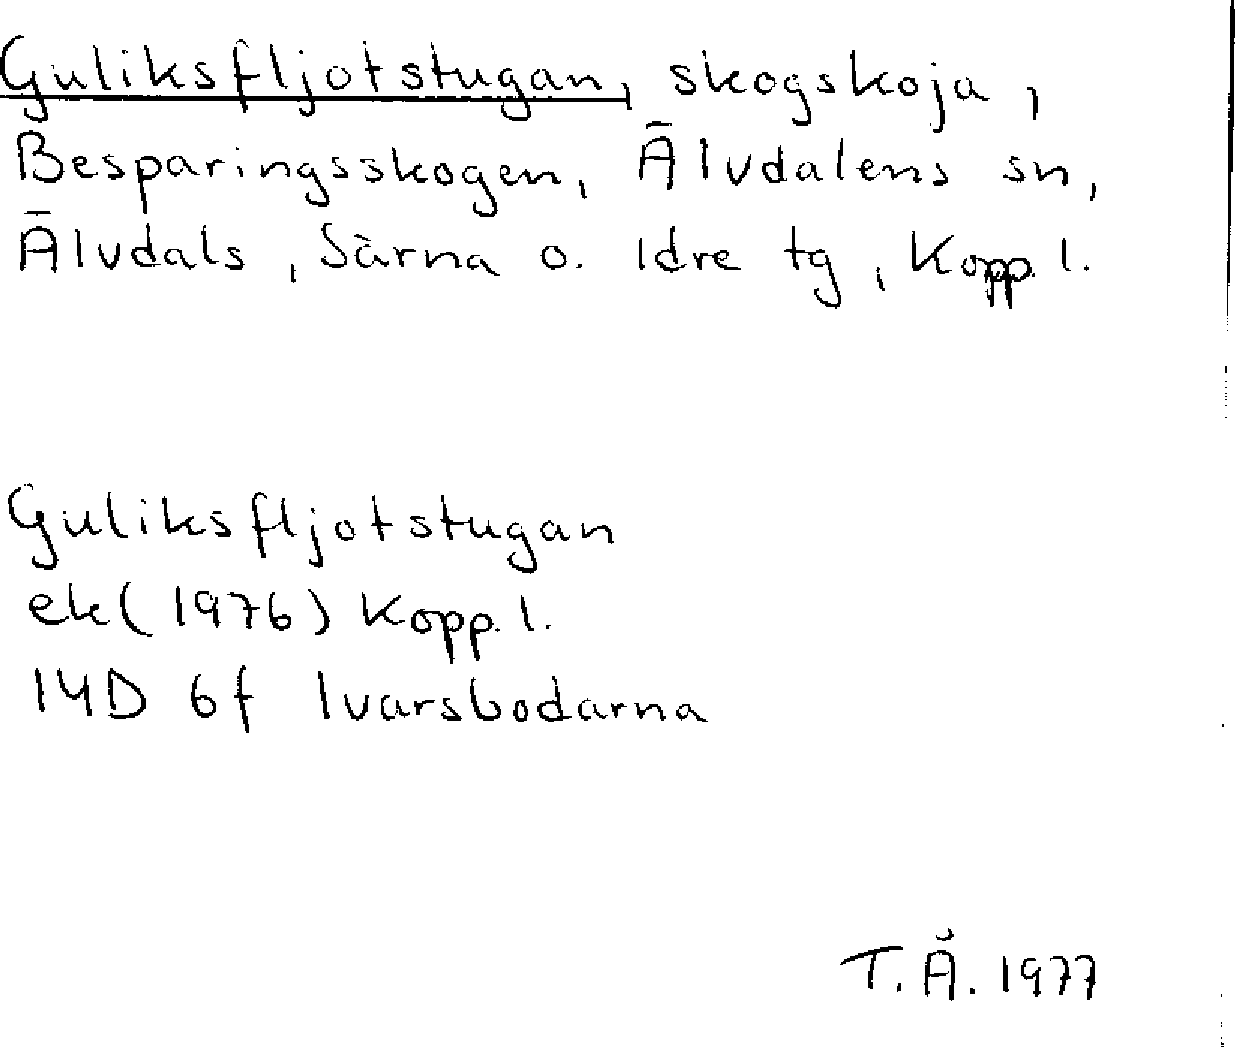 Guliksfljotstugan, skogskoja,
Besparingsskogen, Älvdalens sn,
Älvdals, Särna o. Idre tg, Kopp. l.
Guliksfljotstugan
ek (1976) Kopp. l.
14D 6f Ivarsbodarna
T. Å. 1977